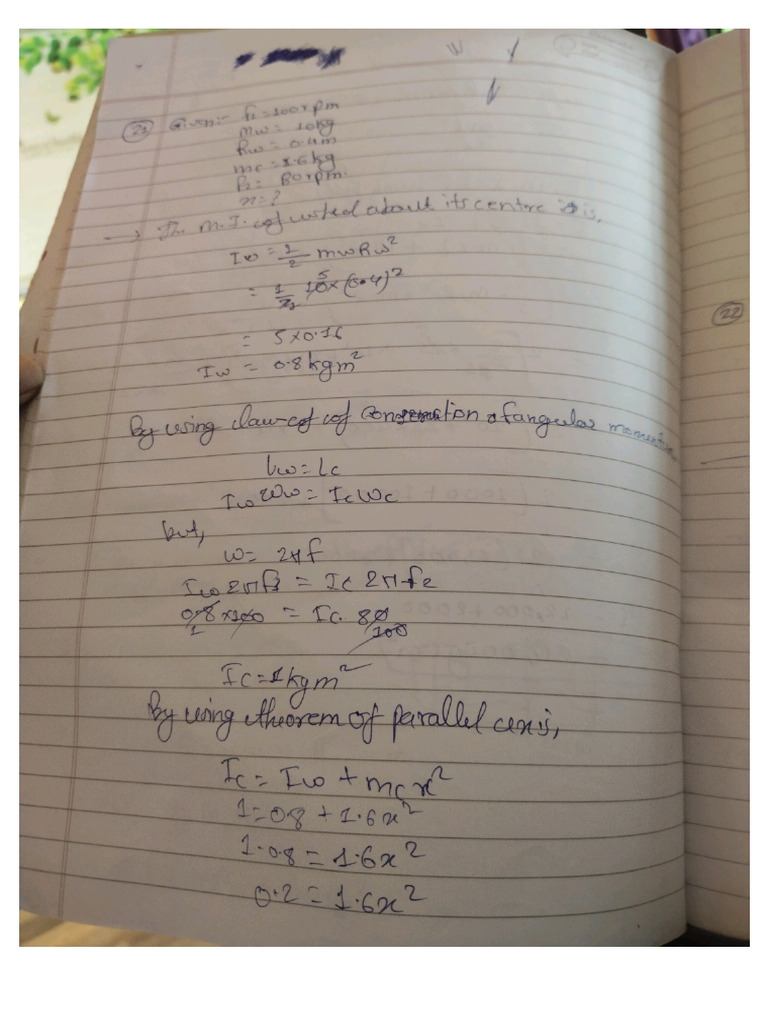 21 Given:- f1=100rpm
mw= 10kg
Rw= 0.4m
mc=1.6kg
f2= 80rpm.
x=?
→ The M.I. of about its centre is,
Iw = 1/2 mwRw²
= 1/2 10×(0.4)²
= 5×0.16
Iw = 0.8kgm²
22
By using law of of conservation of angular
Lw=Lc
Iwωw=Icωc
but,
ω= 2πf
Iw2πf1 = Ic 2πf2
0.8×100 = Ic. 80
Ic=1kgm²
By using theorem of parallel axis,
Ic=Iw+mcx²
1=0.8+1.6x²
1-0.8=1.6x²
0.2=1.6x²